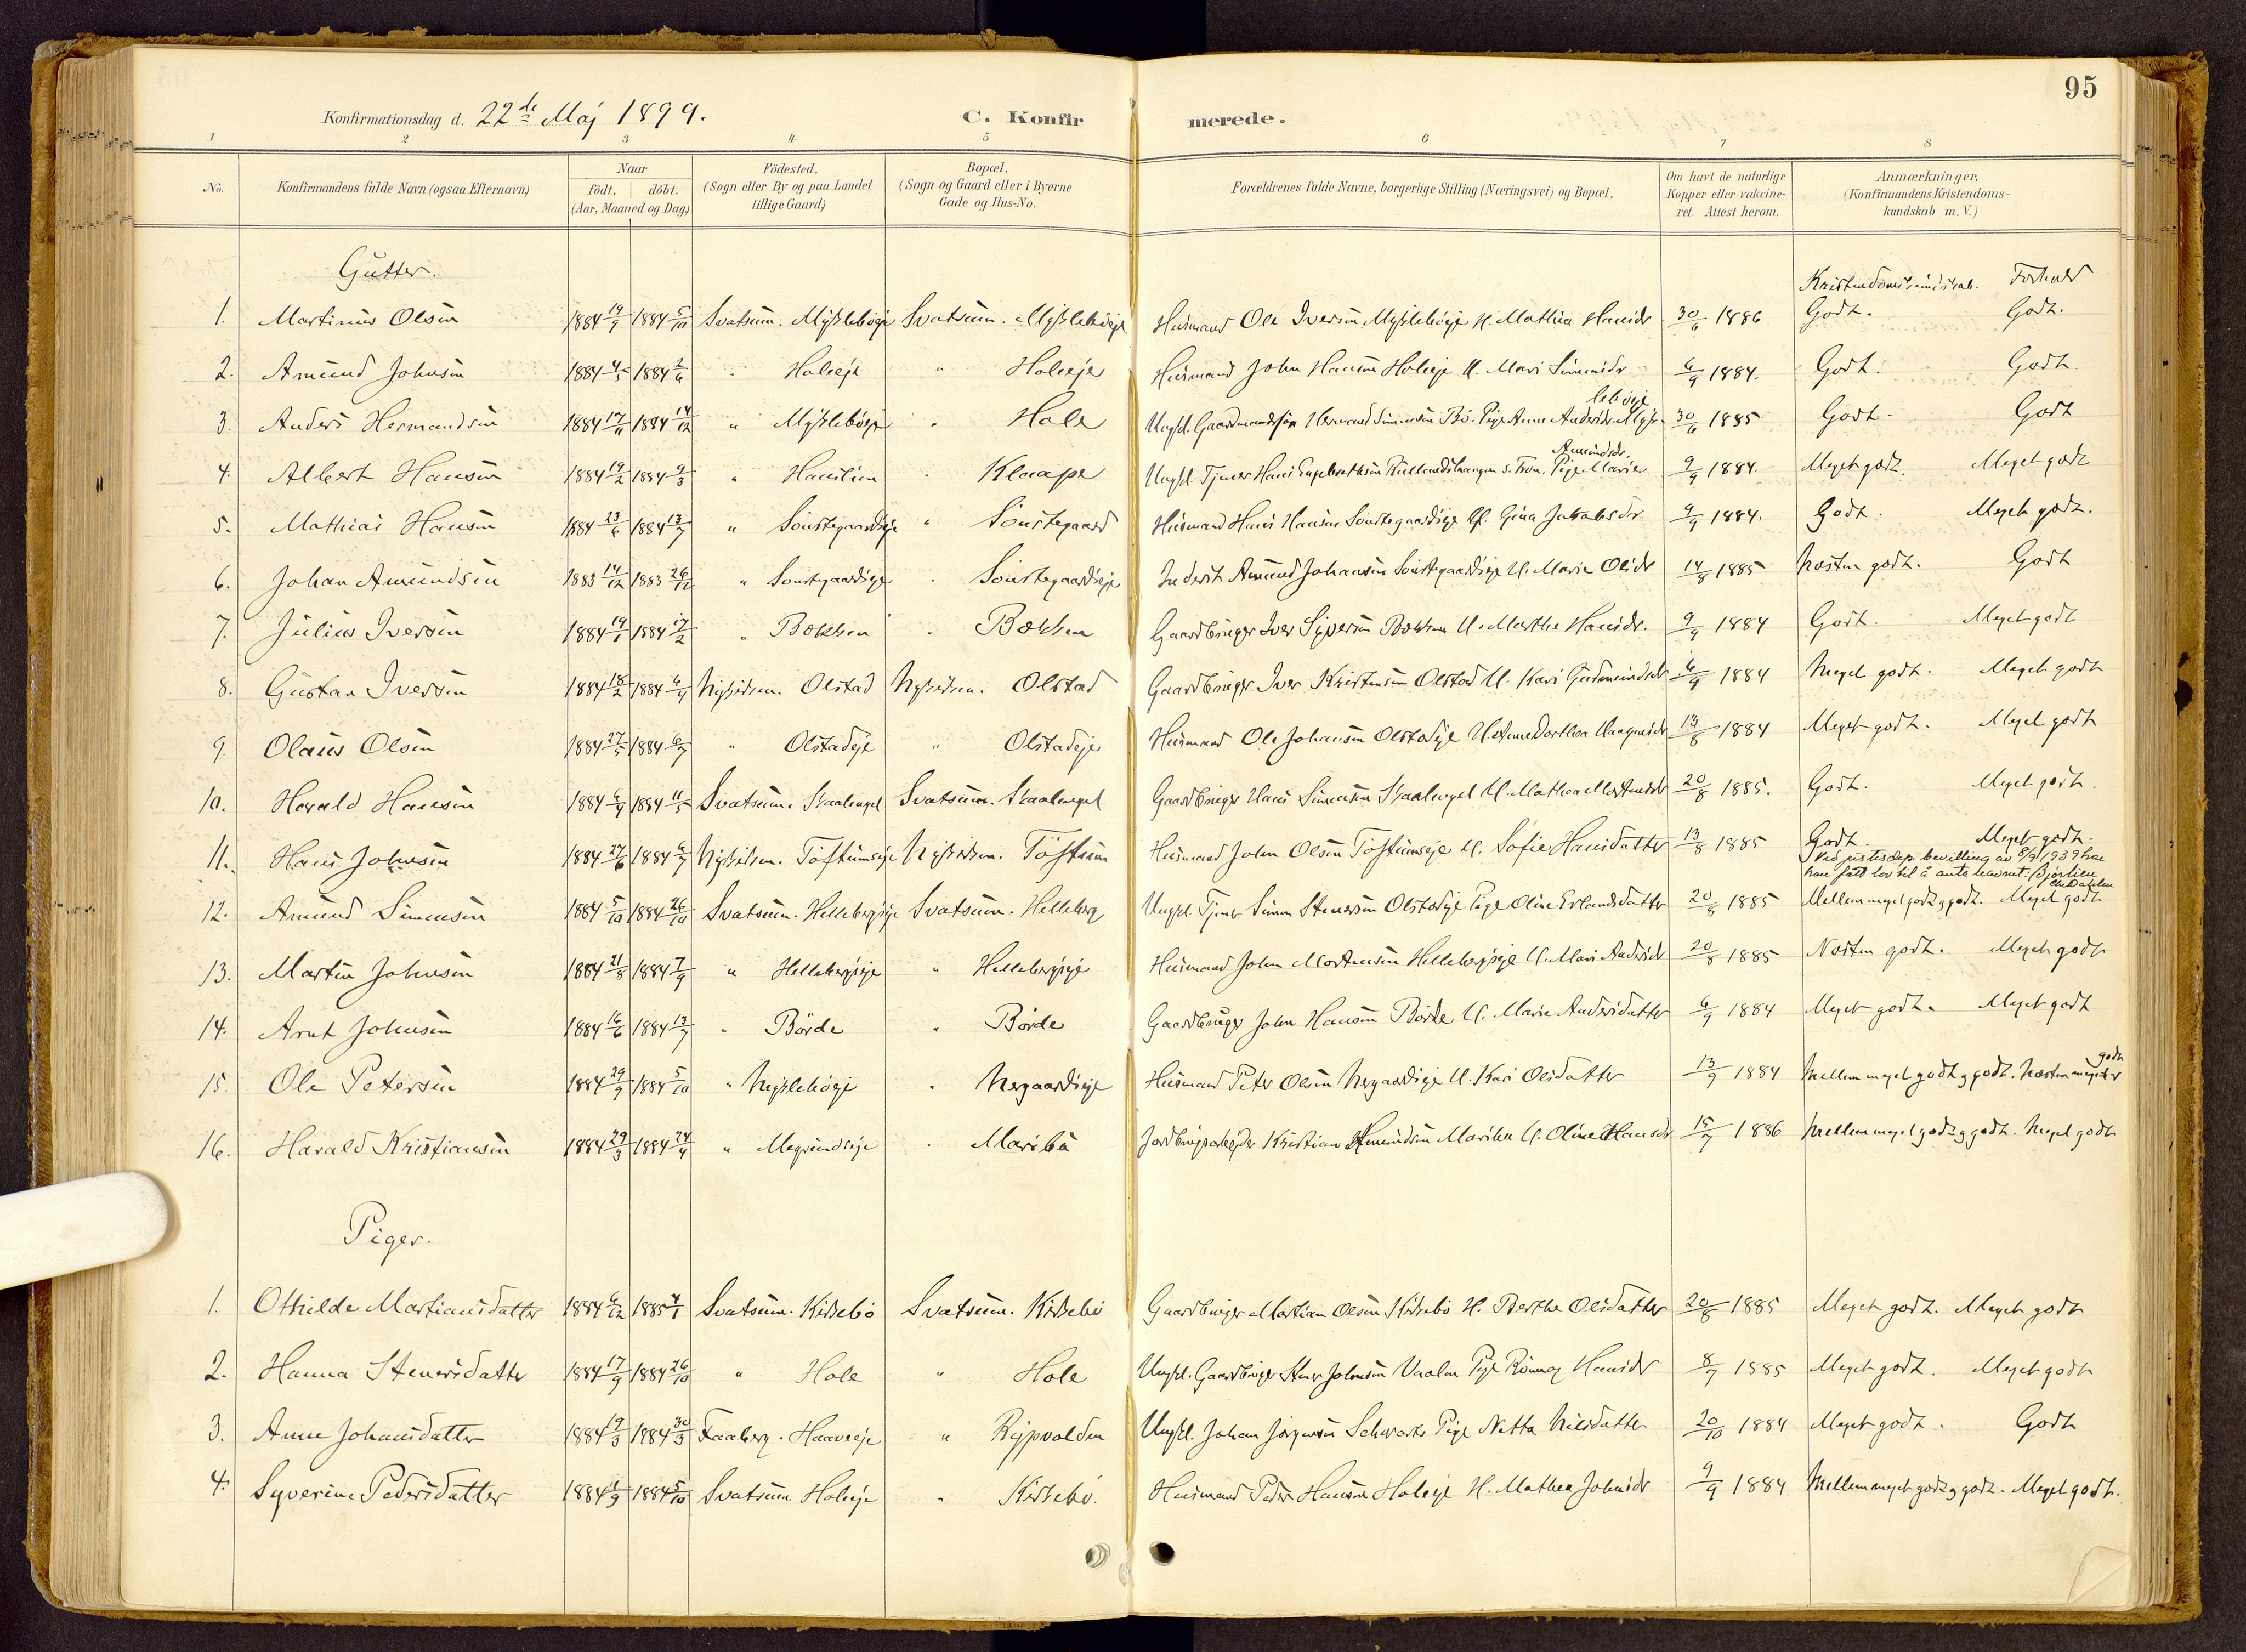 95
Konfirmationsdag d. 22de Maj 1899. C. Konfirmerede.
1 2 3 4 5 6 7 8
No. Konfirmandens fulde Navn (ogsaa Efternavn) Naar födt. döbt. (Aar, Maaned og Dag) Födested. (Sogn eller By og paa Landet tillige Gaard) Bopæl. (Sogn og Gaard eller i Byerne Gade og Hus-No. Forældrenes fulde Navne, borgerlige Stilling (Næringsvei) og Bopæl. Om havt de naturlige Kopper eller vakcineret. Attest herom. Anmærkninger, (Konfirmandens Kristendomskundskab m. V.)
Gutter.
Kristendomskundskab. Forhold
1. Martinus Olsen 1884 19/9 1884 5/10 Svatsum. Svatsum. Husmand Ole Iversen H. Mathea Hansdr 30/6 1886 Godt. Godt.
2. Amund Johnsen 1884 4/5 1884 2/6 " Holeeje " Holeeje Husmand John Hansen Holeeje H. Mari Simensdr 6/9 1884. Godt. Godt.
3. Anders Hermandsen 1884 17/11 1884 14/12 " " Hole Ungkl. Gaardmandssön Hermand Simensen Bö. Pige Anne Andersdr. 30/6 1885 Godt. Godt
4. Albert Hansen 1884 19/2 1884 9/3 " Hauslien " Klaape Ungkl. Tjener Hans Engebrethsen Pige Marie Amundsdr. 9/9 1884. Meget godt. Meget godt
5. Mathias Hansen 1884 23/6 1884 13/7 " Sönstegaardseje " Sönstegaard Husmand Hans Hansen Sönstegaardseje H. Gina Jakobsdr 9/9 1884. Godt. Meget godt.
6. Johan Amundsen 1883 14/12 1883 26/12 " Sönstegaardseje " Sönstegaardseje Inderst Amund Johansen Sönstegaardseje H. Marie Olsdr 14/8 1885 Næsten godt. Godt
7. Julius Iversen 1884 19/1 1884 17/2 " Bækken " Bækken Gaardbruger Iver Syversen Bækken H. Marthe Hansdr. 9/9 1884 Godt. Meget godt
8. Gustav Iversen 1884 18/2 1884 6/4 Olstad Olstad Gaardbruger Iver Kristensen Olstad H. Kari Gudmundsdr 6/9 1884 Meget godt. Meget godt
9. Olaus Olsen 1884 27/5 1884 6/7 " Olstadeje " Olstadeje Husmand Ole Johansen Olstadeje H. Anne Dorthea 13/8 1884 Meget godt. Meget godt
10. Harald Hansen 1884 6/4 1884 11/5 Svatsum. Skaalengel Svatsum. Skaalengel Gaardbruger Hans Simensen Skaalengel H. Mathea Mortensdr 20/8 1885. Godt. Meget godt.
11. Hans Johnsen 1884 27/6 1884 6/7 Töftumseje Töftum Husmand John Olsen Töftumseje H. Sofie Hansdatter 13/8 1885 Godt. Meget godt.
Ved justisdep. bevilling av 8/9 1939 har
han fått lov til å anta navnet: Björlien
12. Amund Simensen 1884 5/10 1884 26/10 Svatsum. Hellebergseje Svatsum. Helleberg Ungkl. Tjener Simen Stenersen Olstadeje Pige Oline Erlandsdatter 20/8 1885 Mellem meget godt og godt. Meget godt
13. Martin Johnsen 1884 21/8 1884 7/9 " Hellebergseje " Hellebergseje Husmand John Mortensen Hellebergseje H. Mari Andersdr 20/8 1885 Næsten godt. Meget godt
14. Arnt Johnsen 1884 16/6 1884 13/7 " Börde " Börde Gaardbruger John Hansen Börde H. Marie Andersdatter 6/9 1884 Meget godt. Meget godt
15. Ole Petersen 1884 29/9 1884 5/10 " " Nergaardseje Husmand Peter Olsen Nergaardseje H. Kari Olsdatter 13/9 1884 Mellem meget godt og godt. Næsten meget godt
16. Harald Kristiansen 1884 29/3 1884 24/4 " Megrundseje " Maribu Jordbrugsarbejder Kristian Amundsen H. Oline Hansdr 15/7 1886 Mellem meget godt og godt. Meget godt
Piger.
1. Othilde Martiansdatter 1884 6/12 1885 4/1 Svatsum. Kirkebö Svatsum. Kirkebö Gaardbruger Martian Olsen Kirkebö H. Berthe Olsdatter 20/8 1885 Meget godt. Meget godt
2. Hanna Stenersdatter 1884 17/9 1884 26/10 " Hole " Hole Ungkl. Gaardbruger Stener Johnsen Vaalen Pige Rönnog Hansdr 8/7 1885 Meget godt. Meget godt
3. Anne Johansdatter 1884 19/3 1884 30/3 Faaberg. Haaveeje " Rypvolden Ungkl. Johan Jörgensen Schwartz Pige Netta Nilsdatter 20/10 1884 Meget godt. Godt
4. Syverine Pedersdatter 1884 1/9 1884 5/10 Svatsum. Holeeje " Kirkebö. Husmand Peder Hansen Holeeje H. Mathea Johnsdr 9/9 1884 Mellem meget godt og godt. Meget godt.